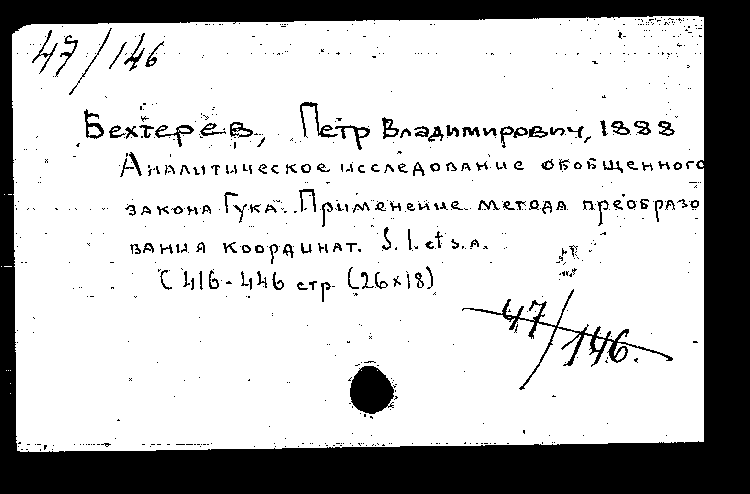 47/146
Бехтерев, Петр Владимирович, 1888
Аналитическое исследование обобщенного
закона Гука. Применение метода преобразо
вания координат. S. l. et s. a.
С 416-446 стр (26x18)
47/146.